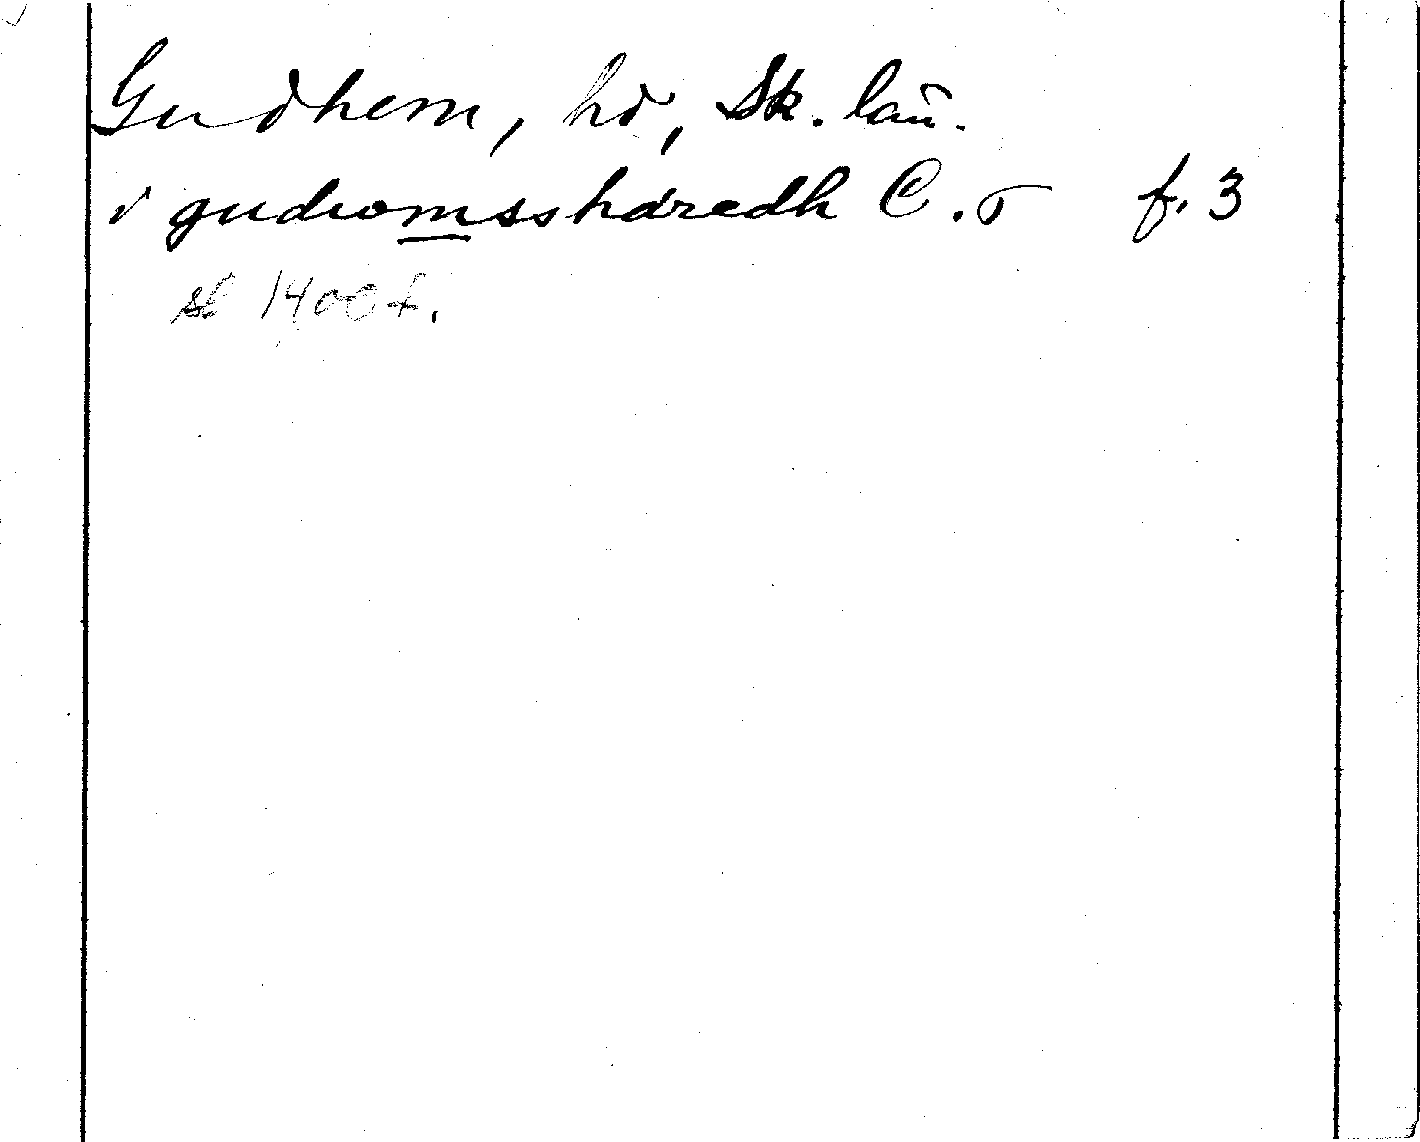 Gudhem, hd, Sk. län.
i gudiomssháredh C. 5 f. 3
sl 1400 t.